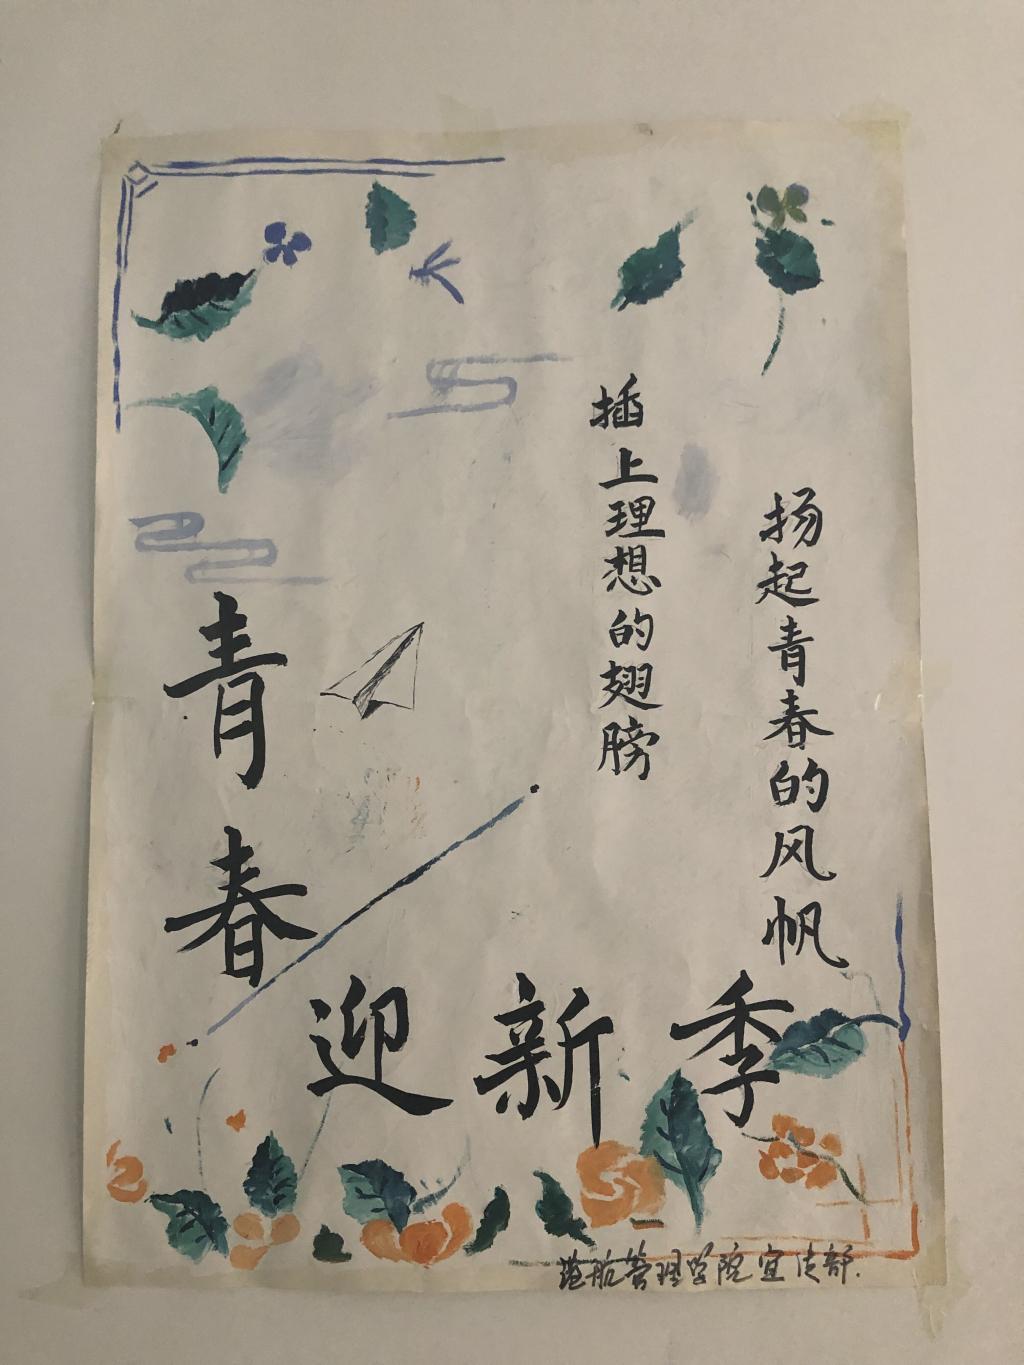 扬起青春的风帆
插上理想的翅膀
青春
迎新季
港航管理学院宣传部.